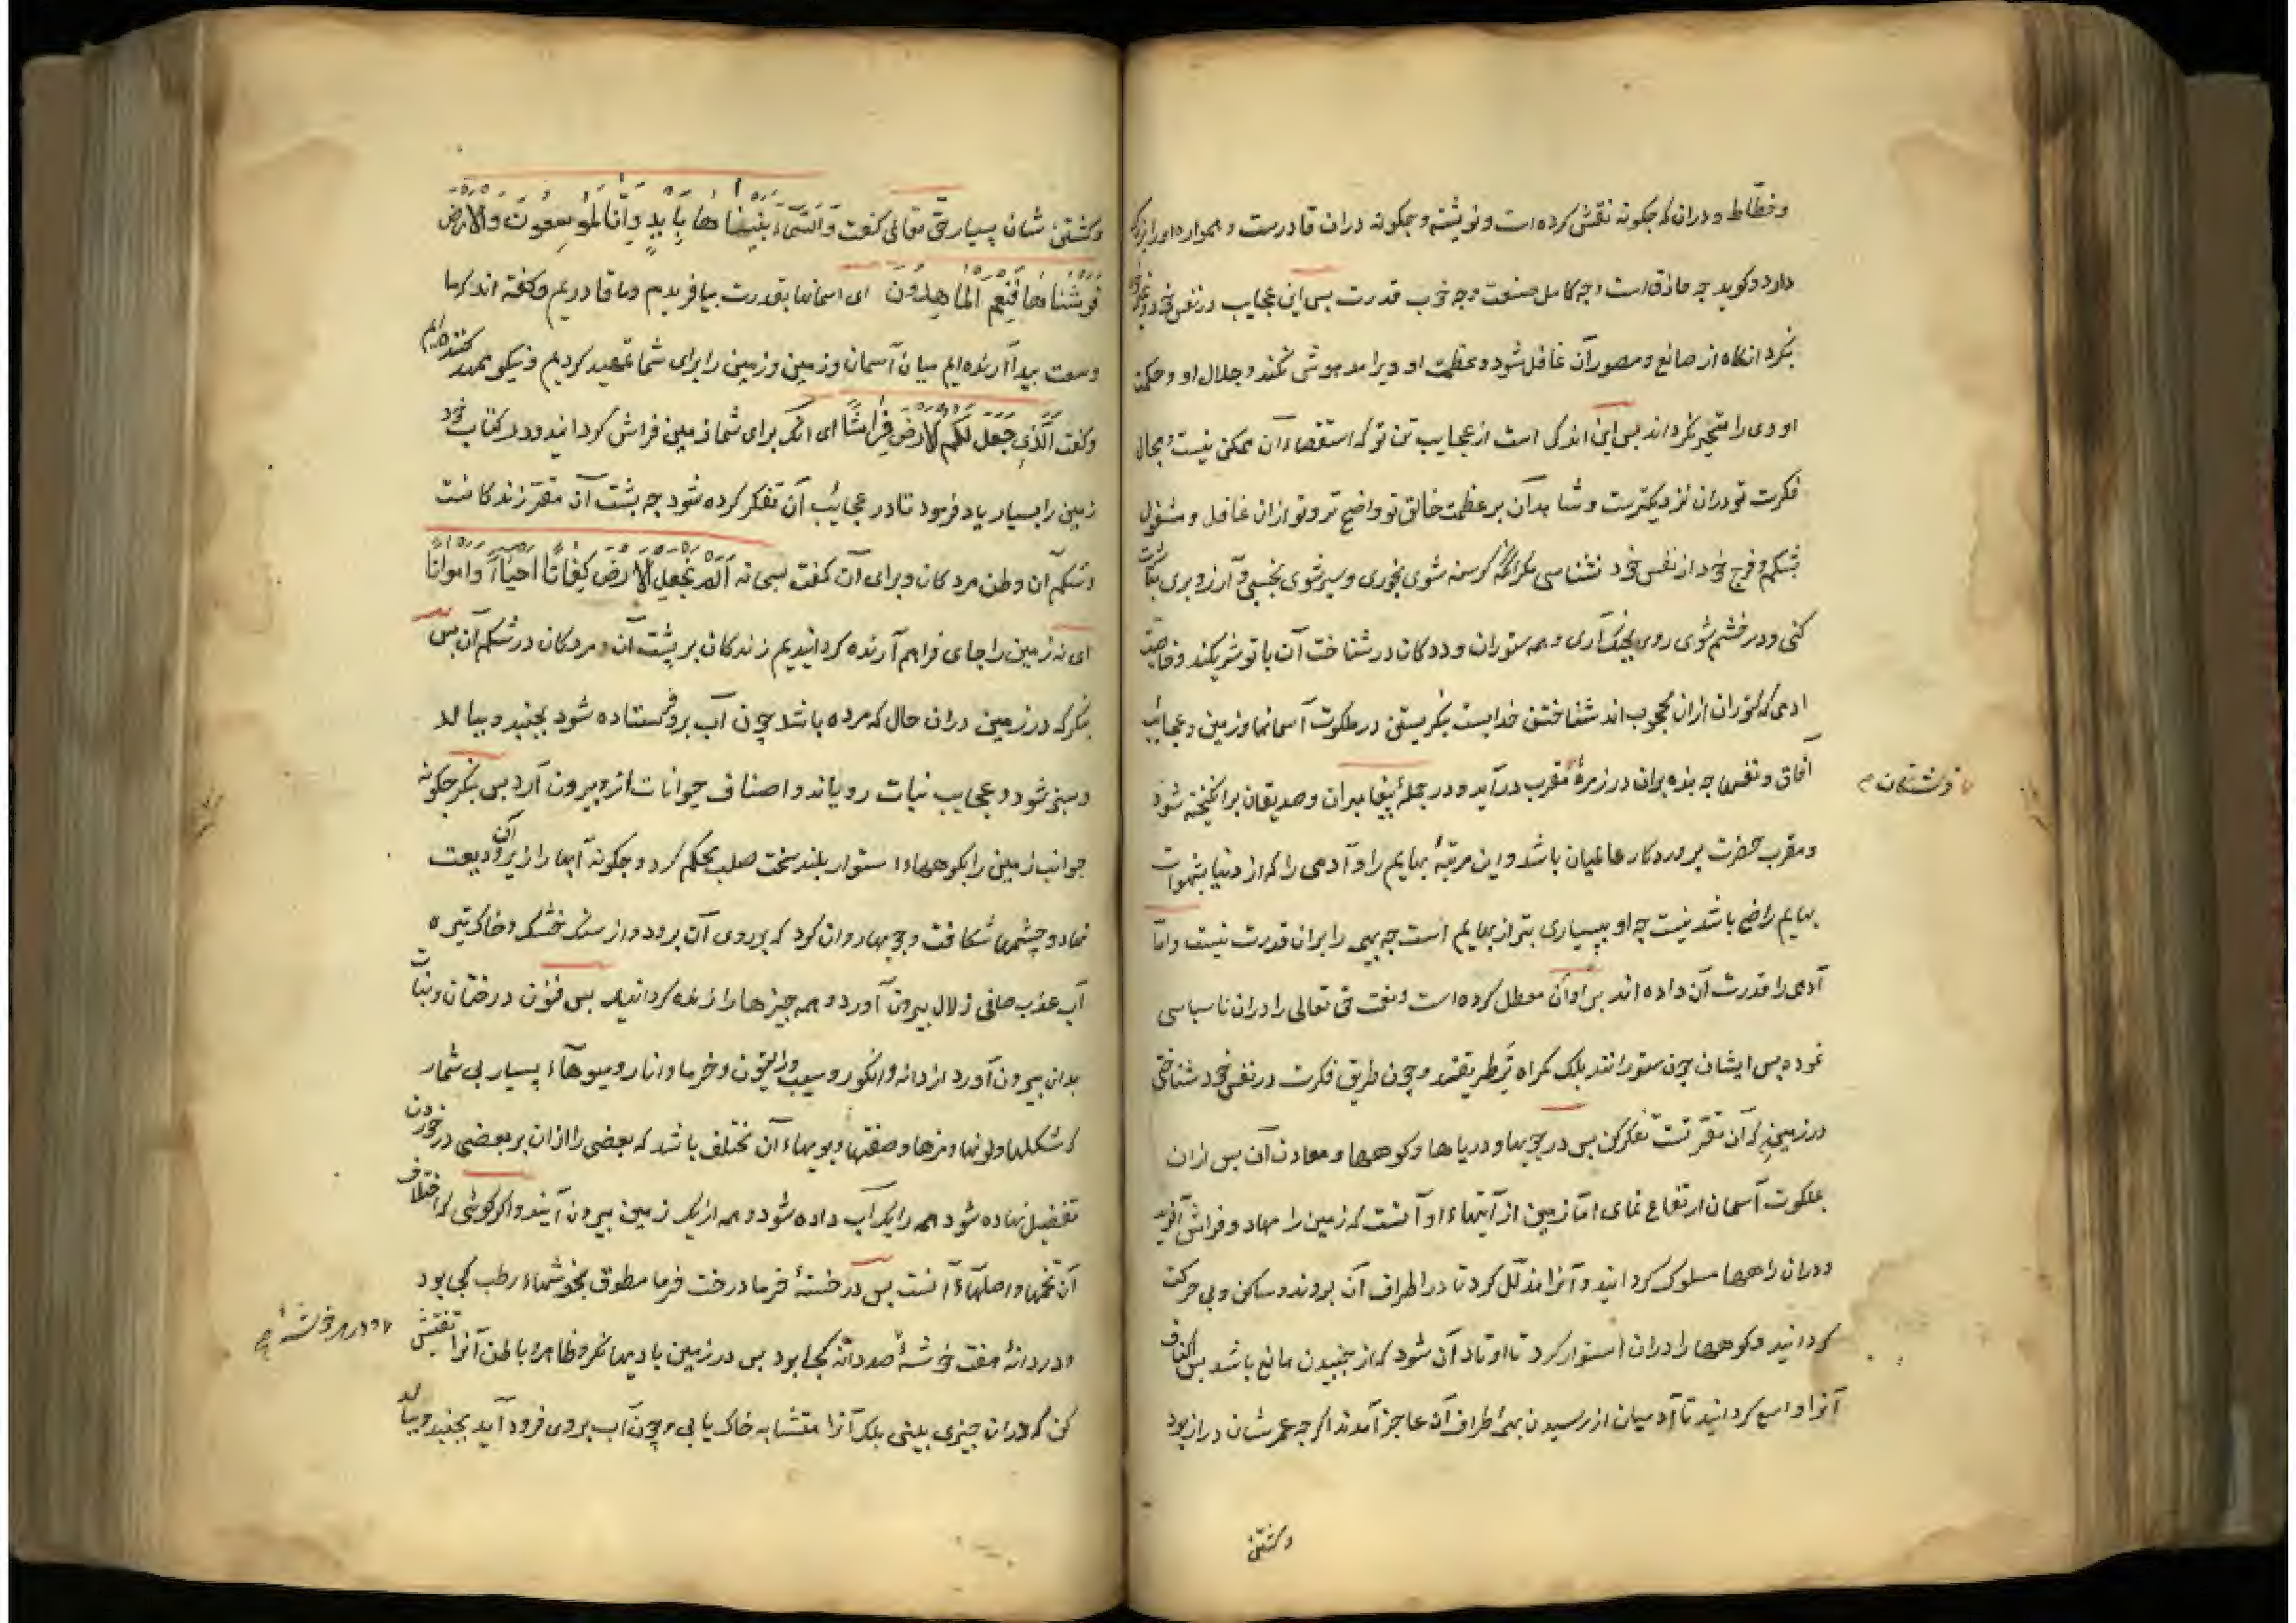 وخطّاط ودران که جکونه نقش کرده است ونوشته وجکونه دران قادرست و همواره اورا بزرک
دارد وکوید چه حاذق است وچه کامل صنعت وچه خوب قدرت بس این عجایب در نفس خود وغیر خود
بنکرد انکاه از صانع ومصور آن غافل شود وعظمت او ویرا مدهوش نکند وجلال او وحکمت
او وی را متحیر نکرداند بس این اندکی است از عجایب تن تو که استقصاء آن ممکن نیست ومجال
فکرت تو دران نزدیکترست وشاهد آن بر عظمت خالق تو واضح تر وتو ازان غافل ومشغول
بشکم وفرج خود از نفس خود نشناسی مکر انکه کرسنه شوی بخوری وسیر شوی بخسبی وآرزو بری مباشرت
کنی ودر خشم شوی روی بجنک آری وهمه ستوران وددکان در شناخت آن با تو شریکند وخاصیت
ادمی که ستوران ازان محجوب اند شناختن خدایست بنکریستن در ملکوت آسمانها وزمین وعجائب
آفاق ونفسها چه بنده بران در زمرهٔ مقرب درآید ودر جملهٔ پیغامبران وصدیقان برانکیخته شود
فرشتکان
ومقرب حضرت پروردکار عالمیان باشد واین مرتبهٔ بهایم را وآدمی را که از دنیا بشهوات
بهایم راضی باشد نیست چه او ببسیاری بتر از بهایم است چه بهیمه را بران قدرت نیست وامّا
آدمی را قدرت آن داده اند بس او آن معطل کرده است ونعمت حق تعالی را دران ناسپاسی
نموده بس ایشان چون ستورانند بلک کمراه تر طریقتند وچون طریق فکرت در نفس خود شناختی
در زمین که آن مقرّ تست تفکر کن بس در جویها ودریاها وکوهها ومعادن آن بس ازان
بملکوت آسمان ارتفاع نمای امّا زمین از آیتهاء او آنست که زمین را مهاد وفراش آفرید
ودران راهها مسلوک کردانید وآنرا مذلّل کرد تا در اطراف آن بروند وساکن وبی حرکت
کردانید وکوهها را دران استوار کرد تا اوتاد آن شود که از جنبیدن مانع باشد بس اکناف
آنرا واسع کردانید تا آدمیان از رسیدن بهمهٔ اطراف آن عاجز آمدند اکرچه عمرشان دراز بود
وکشتن
وکشتن شان بسیار حق تعالی کفت وَالسَّمَاءَ بَنَيْنَاهَا بِأَيْدٍ وَإِنَّا لَمُوسِعُونَ وَالأَرْضَ
فَرَشْنَاهَا فَنِعْمَ الْمَاهِدُونَ ای اسمانها بقدرت بیافریدیم وما قادریم وکفته اند که ما
وسعت پیدا آرنده ایم میان آسمان وزمین وزمین را برای شما تمهید کردیم ونیکو ممهد کننده ایم
وکفت الَّذِي جَعَلَ لَكُمُ الأَرْضَ فِرَاشًا ای انک برای شما زمین فراش کردانید ودر کتاب خود
زمین را بسیار یاد فرمود تا در عجائب آن تفکر کرده شود چه پشت آن مقرّ زندکانست
وشکم آن وطن مردکان وبرای آن کفت سبحانه أَلَمْ نَجْعَلِ الأَرْضَ كِفَاتًا أَحْيَاءً وَأَمْوَاتًا
ای نه زمین را جای فراهم آرنده کردانیدیم زندکان بر پشت آن ومردکان در شکم آن بس
بنکر که در زمین دران حال که مرده باشد چون آب برو فرستاده شود بجنبد وببالد
وسبز شود وعجایب نبات رویاند واصناف حیوانات ازو بیرون آرد بس بنکر جکونه
جوانب زمین را بکوههاء استوار بلند سخت صلب محکم کرد وجکونه آبها را از زیر آن ودیعت
نهاد وچشمها شکافت وجویها روان کرد که بر روی آن برود واز سنک خشک وخاک تیره
آب عذب صافی زلال بیرون آورد وهمه چیزها را زنده کردانید بس فنون درختان ونبات
بدان بیرون آورد از دانه وانکور وسیب وزیتون وخرما وانار ومیوهاء بسیار بی شمار
که شکلها ولونها ومزها وصفتها وبویهاء آن مختلف باشد که بعضی را ازان بر بعضی در خوردن
تفضیل نهاده شود همه را یک آب داده شود وهمه از یک زمین بیرون آیند واکر کوئی که اختلاف
آن تخمها واصلهاء آنست بس در خستهٔ خرما درخت خرما مطوق بخوشهاء رطب کی بود
ودر دانهٔ هفت خوشهٔ صد دانه کجا بود بس در زمین بادیها نکر وظاهر وباطن آنرا تفتیش
ودر هر خوشهٔ
کن که دران چیزی بینی بلک آنرا متشابه خاک یابی وچون آب بروی فرود آید بجنبد وببالد